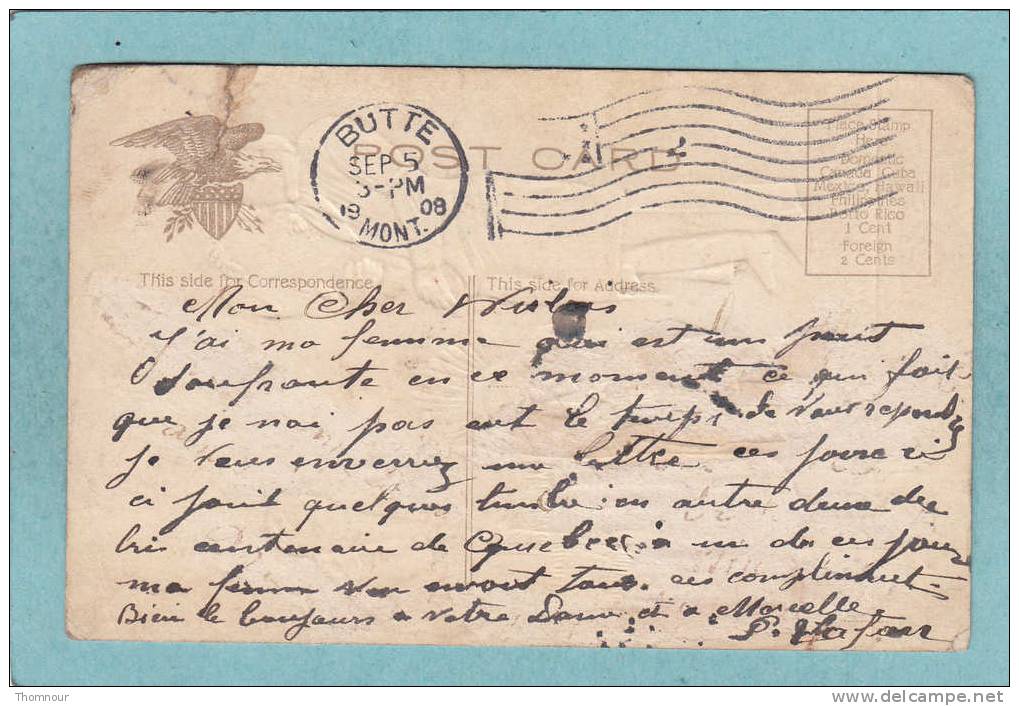 BUTTE
SEP 5
3-PM
19 08
MONT.
POST CARD
Place Stamp
Here
Domestic
Canada, Cuba
Mexico, Hawaii
Philippines
Porto Rico
1 Cent
Foreign
2 Cents
This side for Correspondence
This side for Address
Mon Cher
J'ai ma femme qui est un peut
soufrante en ce moment ce qui fait
que je nai pas eut le temps de vous repondez
je vous enverrez une lettre ces jours ci
ci joint quelques timbre en autre deux de
centenaire de Quebec a un de ces jours
ma femme vou envoit tous ces compliment
Bien le bonjours a votre Dame et a Marcelle
P.
Thomnour
www.delcampe.net